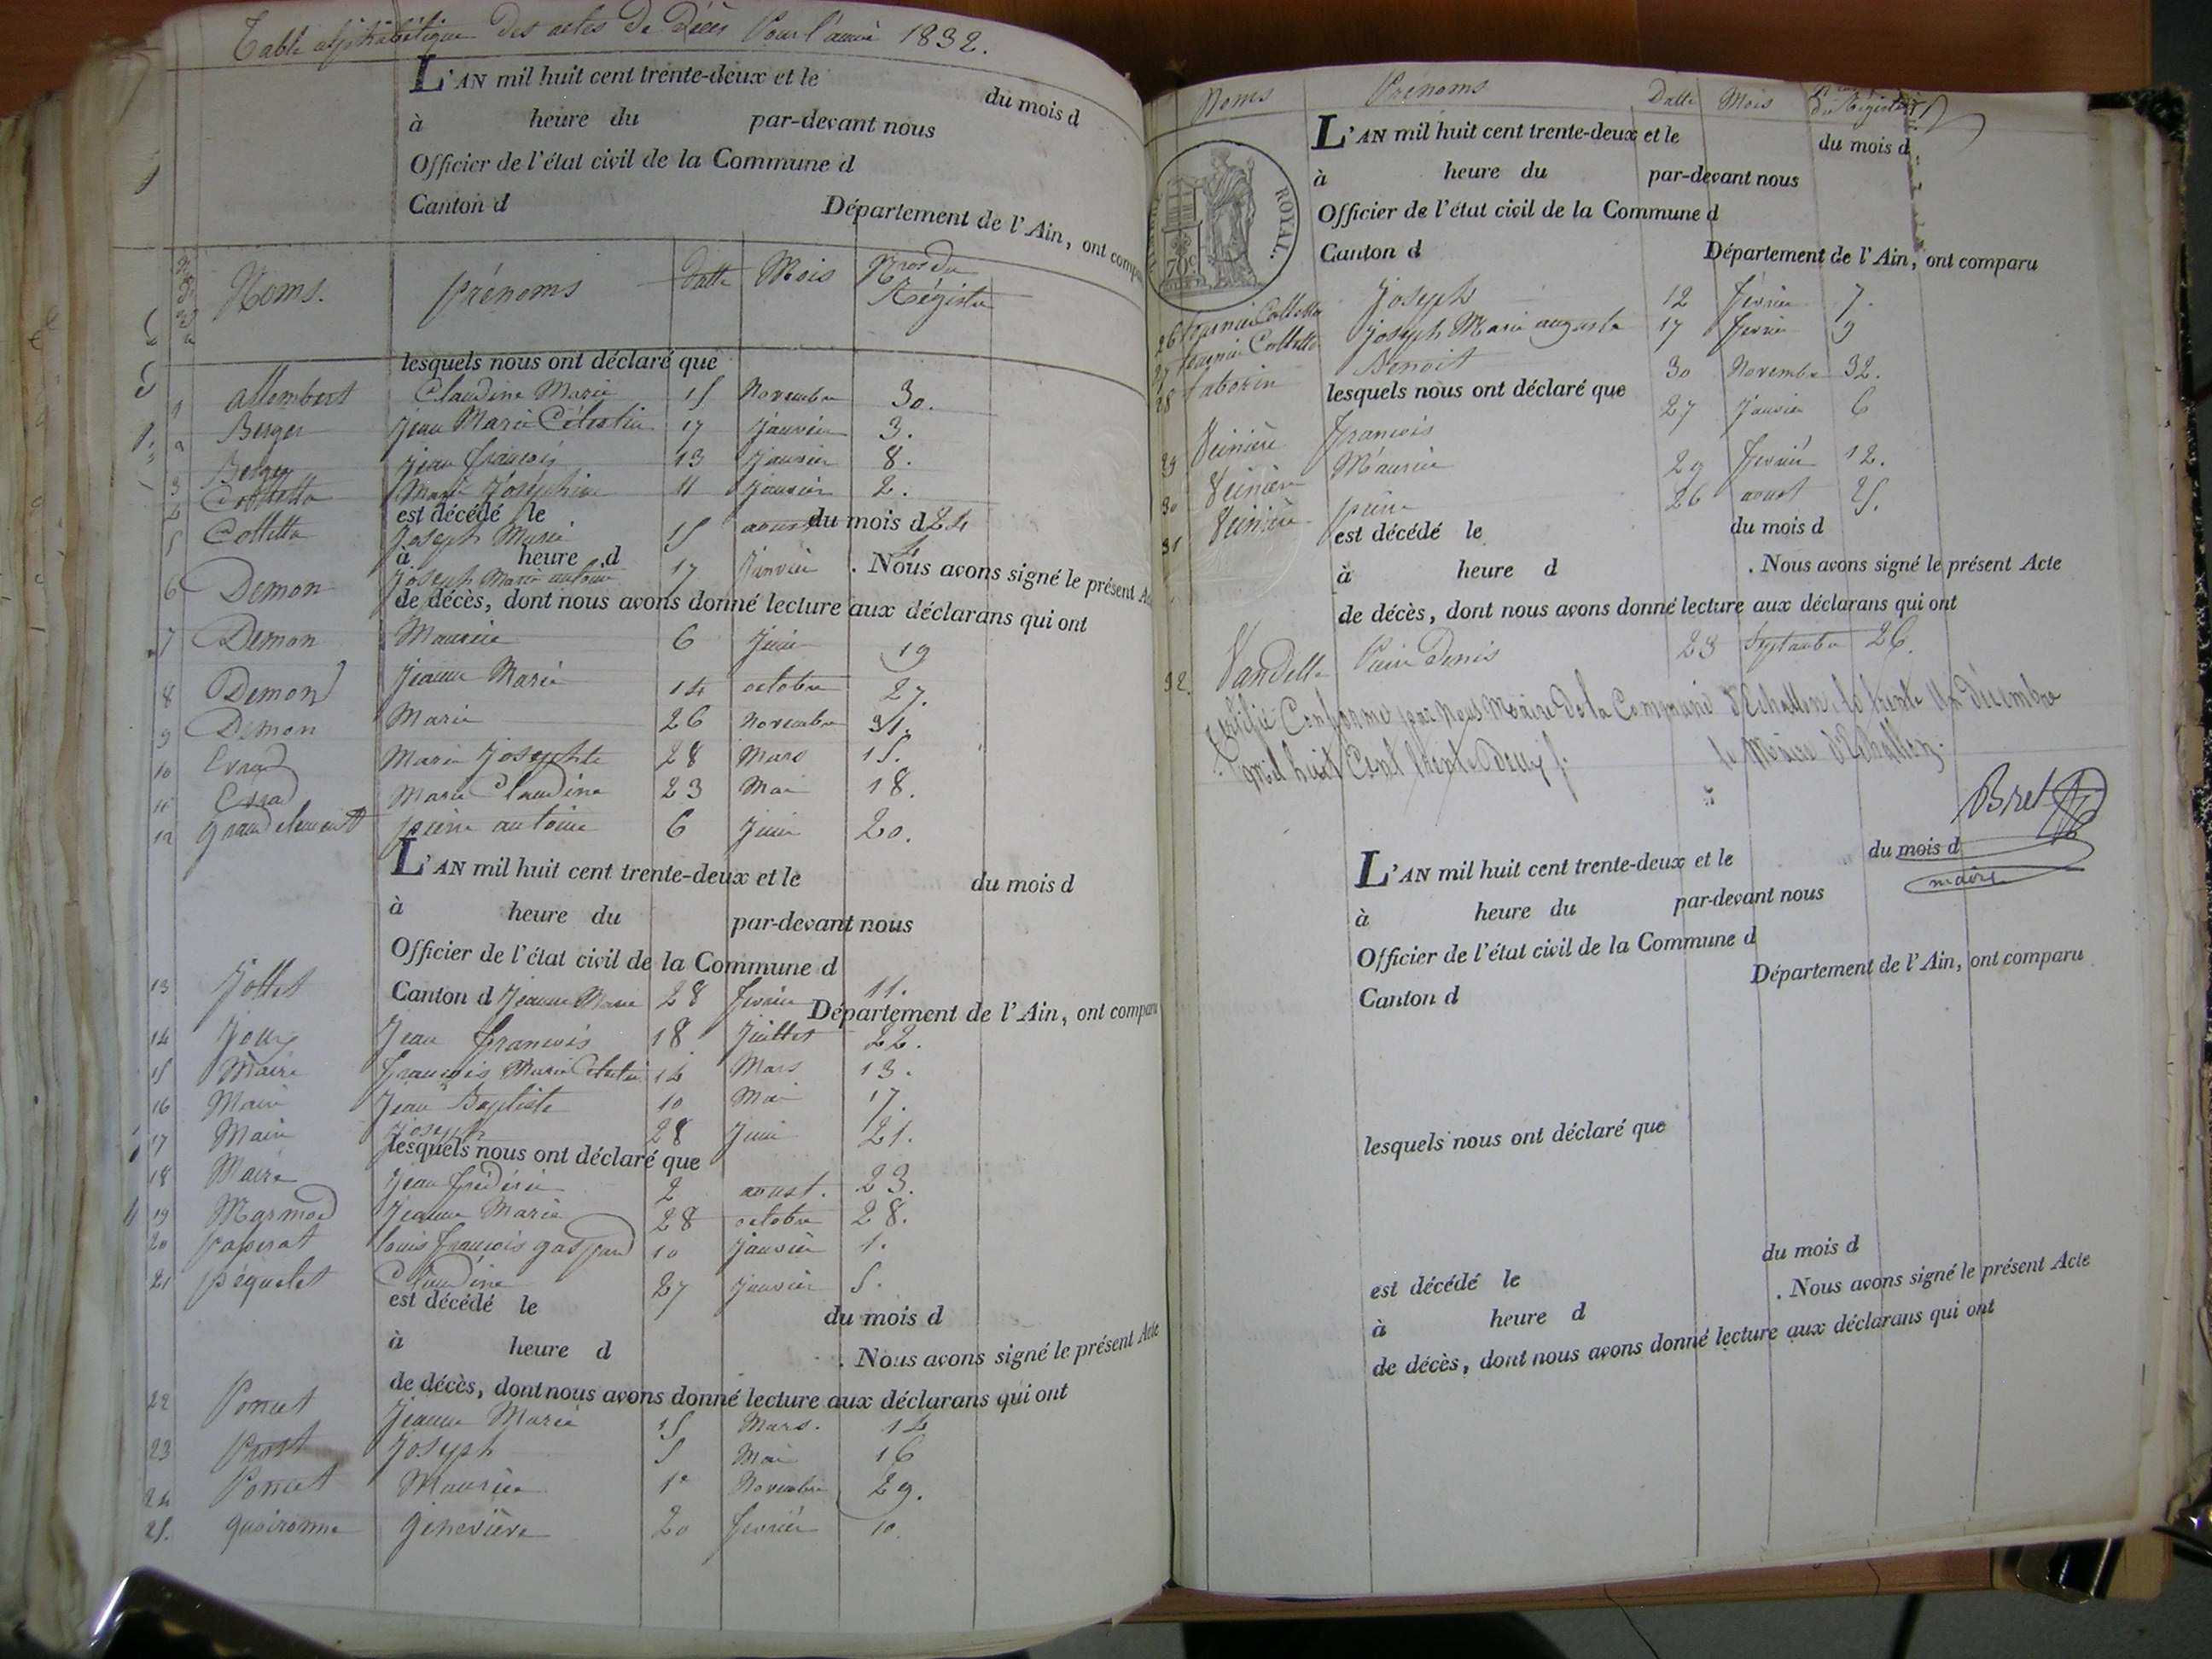 Table alphabétique des actes de Décès Pour l'année 1832.
L'AN mil huit cent trente-deux et le du mois d
à heure du par-devant nous
Officier de l'état civil de la Commune d
Canton d Département de l'Ain, ont compa
Noms. prénoms Datte Mois Nros du Régistre
lesquels nous ont déclaré que
1 allembert Claudine Marie 15 Novembre 30.
2 Berger jean Marie Célestin 17 janvier 3.
3 Berger jean françois 13 janvier 8.
4 Colletta Marie Joséphine 11 janvier 2.
est décédé le du mois d
5 Colletta Joseph Marie 15 aoust 24
à heure d . Nous avons signé le présent Ac
6 Demon Joseph Marie antoine 17 janvier 4
de décès, dont nous avons donné lecture aux déclarans qui ont
7 Demon Maurice 6 juin 19
8 Demond jeanne Marie 14 octobre 27.
9 Demon Marie 26 Novembre 31.
10 Evrad Marie Josephte 28 Mars 15.
11 Evrad Marie Claudine 23 Mai 18.
12 grandclement pierre antoine 6 juin 20.
L'AN mil huit cent trente-deux et le du mois d
à heure du par-devant nous
Officier de l'état civil de la Commune d
13 jollet Canton d Jeanne Marie 28 fevrier 11.
Département de l'Ain, ont comparu
14 joux jean françois 18 juillet 22.
15 Maire françois Marie Célestin 14 Mars 13.
16 Maire jean Baptiste 10 Mai 17.
17 Maire joseph 28 juin 21.
lesquels nous ont déclaré que
18 Maire jean frédéric 2 aoust. 23.
19 Marmod jeanne Marie 28 octobre 28.
20 paperat louis françois gaspard 10 janvier 1.
21 péquelet Claudine 27 janvier 5.
est décédé le du mois d
à heure d . Nous avons signé le présent Acte
de décès, dont nous avons donné lecture aux déclarans qui ont
22 Poncet jeanne Marie 15 Mars. 14
23 Prost joseph 5 Mai 16
24 Poncet Maurice 1er Novembre 29.
25. quoironne genevière 20 fevrier 10.
Noms Prénoms Datte Mois du Régistre
L'AN mil huit cent trente-deux et le du mois d
à heure du par-devant nous
Officier de l'état civil de la Commune d
ROYAL.
70c
Canton d Département de l'Ain, ont comparu
26 Colletta joseph 12 fevrier 7.
27 Colletta joseph Marie auguste 17 fevrier 9
28 taborin Benoit 30 Novembre 32.
lesquels nous ont déclaré que
29 Veinière françois 27 janvier 6
30 Veinière Maurice 29 fevrier 12.
31 Veinière pierre 26 aoust 25.
est décédé le du mois d
à heure d . Nous avons signé le présent Acte
de décès, dont nous avons donné lecture aux déclarans qui ont
32. Vandelle Pierre Denis 23 Septembre 26.
Certifié Conforme par Nous Maire de la Commune d'Echallon le trente un décembre
mil huit Cent trente deux. le Maire d'Echallon.
Bret
maire
L'AN mil huit cent trente-deux et le du mois d
à heure du par-devant nous
Officier de l'état civil de la Commune d
Canton d Département de l'Ain, ont comparu
lesquels nous ont déclaré que
est décédé le du mois d
à heure d . Nous avons signé le présent Acte
de décès, dont nous avons donné lecture aux déclarans qui ont